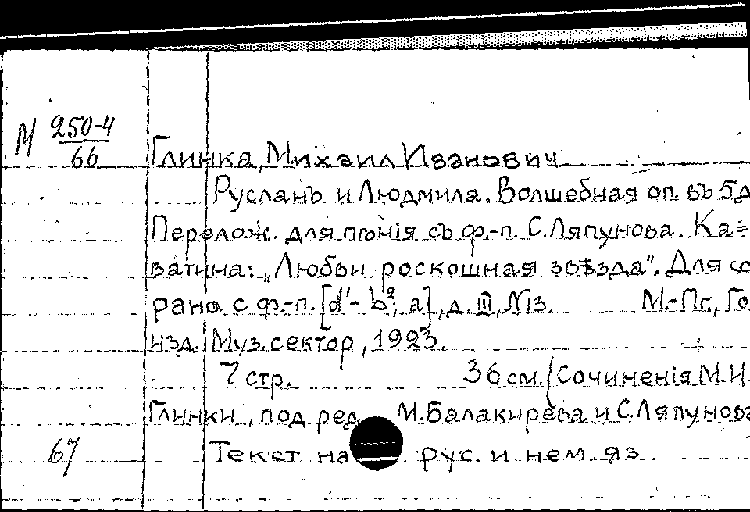 М 250-4
66
Глинка, Михаил Иванович
Русланъ и Людмила. Волшебная оп. въ 5 д
Перелож. для пѣнія съ ф.-п. С. Ляпунова. Ка=
ватина: „Любви роскошная звѣзда". Для со
рано с ф.-п. [d'- b², a], д. III, №13. М.-Пг., Го
изд. Муз. сектор, 1923.
7 стр. 36 см. (Сочиненія М.И.
Глинки, под ред. М. Балакирева и С. Ляпунова
67 Текст на рус. и нем. яз.